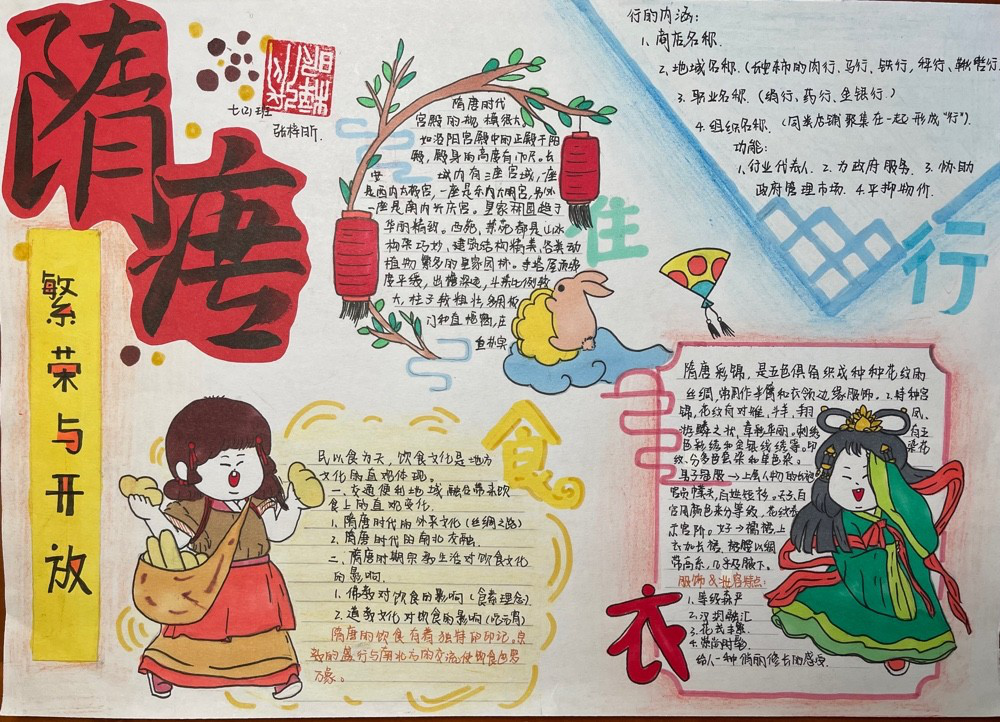 隋唐
繁荣与开放
七(2)班
隋唐时代
宫殿的规模很大
如洛阳宫殿中的正殿干阳
殿,殿身的高度有170尺。长
安城内有三座宫城,一座
是西内太极宫,一座是东内大明宫,另外
一座是南内兴庆宫。皇家祠园趋于
华丽精致。西苑、禁苑都是山水
构架巧妙、建筑结构精美、各类动
植物繁多的皇家园林。
度平缓,出檐深远,斗拱比例较
大,柱子较粗壮,多用板
门和直棂窗,庄
重朴实
住
行的内涵:
1、商店名称.
3、职业名称.(绢行、药行、金银行.)
4.组织名称.(同类店铺聚集在一起形成“行”).
功能:
1.行业代表人. 2.为政府服务. 3.协助
政府管理市场. 4.平抑物价.
行
食
民以食为天,饮食文化是地方
文化的直观体现。
一.交通便利地域融合带来饮
食上的直观变化.
1.隋唐时代的外来文化(丝绸之路)
2.隋唐时代的南北交融.
二.隋唐时期宗教生活对饮食文化
的影响.
1.佛教对饮食的影响(食素理念)
2.道教文化对饮食的影响(吃元宵)
隋唐的饮食有着独特的印记。宗
教的盛行与南北方的交流使饮食包罗
万象。
衣
隋唐彩锦,是五色俱备织成种种花纹的
丝绸,常用作半臂和衣领边缘服饰。2.特种宫
锦,花纹有对雉、斗羊、翔凤、
游鳞之状,章彩华丽。刺绣有五
色彩绣和金银线绣等。印染花
纹,分多色套染和单色染。
服饰&妆容特点:
1.等级森严
2.汉胡融汇
3.花式丰富
4.崇尚时髦
给人一种俏丽修长的感觉.